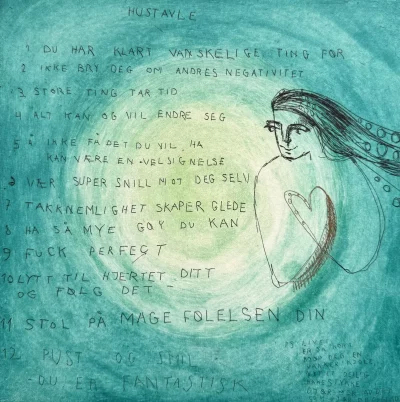 HUSTAVLE
1 DU HAR KLART VANSKELIGE TING FØR
2 IKKE BRY DEG OM ANDRES NEGATIVITET
3 STORE TING TAR TID
4 ALT KAN OG VIL ENDRE SEG
5 Å IKKE FÅ DET DU VIL HA
KAN VÆRE EN VELSIGNELSE
VÆR SUPER SNILL MOT DEG SELV
7 TAKKNEMLIGHET SKAPER GLEDE
8 HA SÅ MYE GØY DU KAN
9 FUCK PERFECT
10 LYTT TIL HJERTET DITT
OG FØLG DET
11 STOL PÅ MAGEFØLELSEN DIN
12 PUST OG SMIL
DU ER FANTASTISK